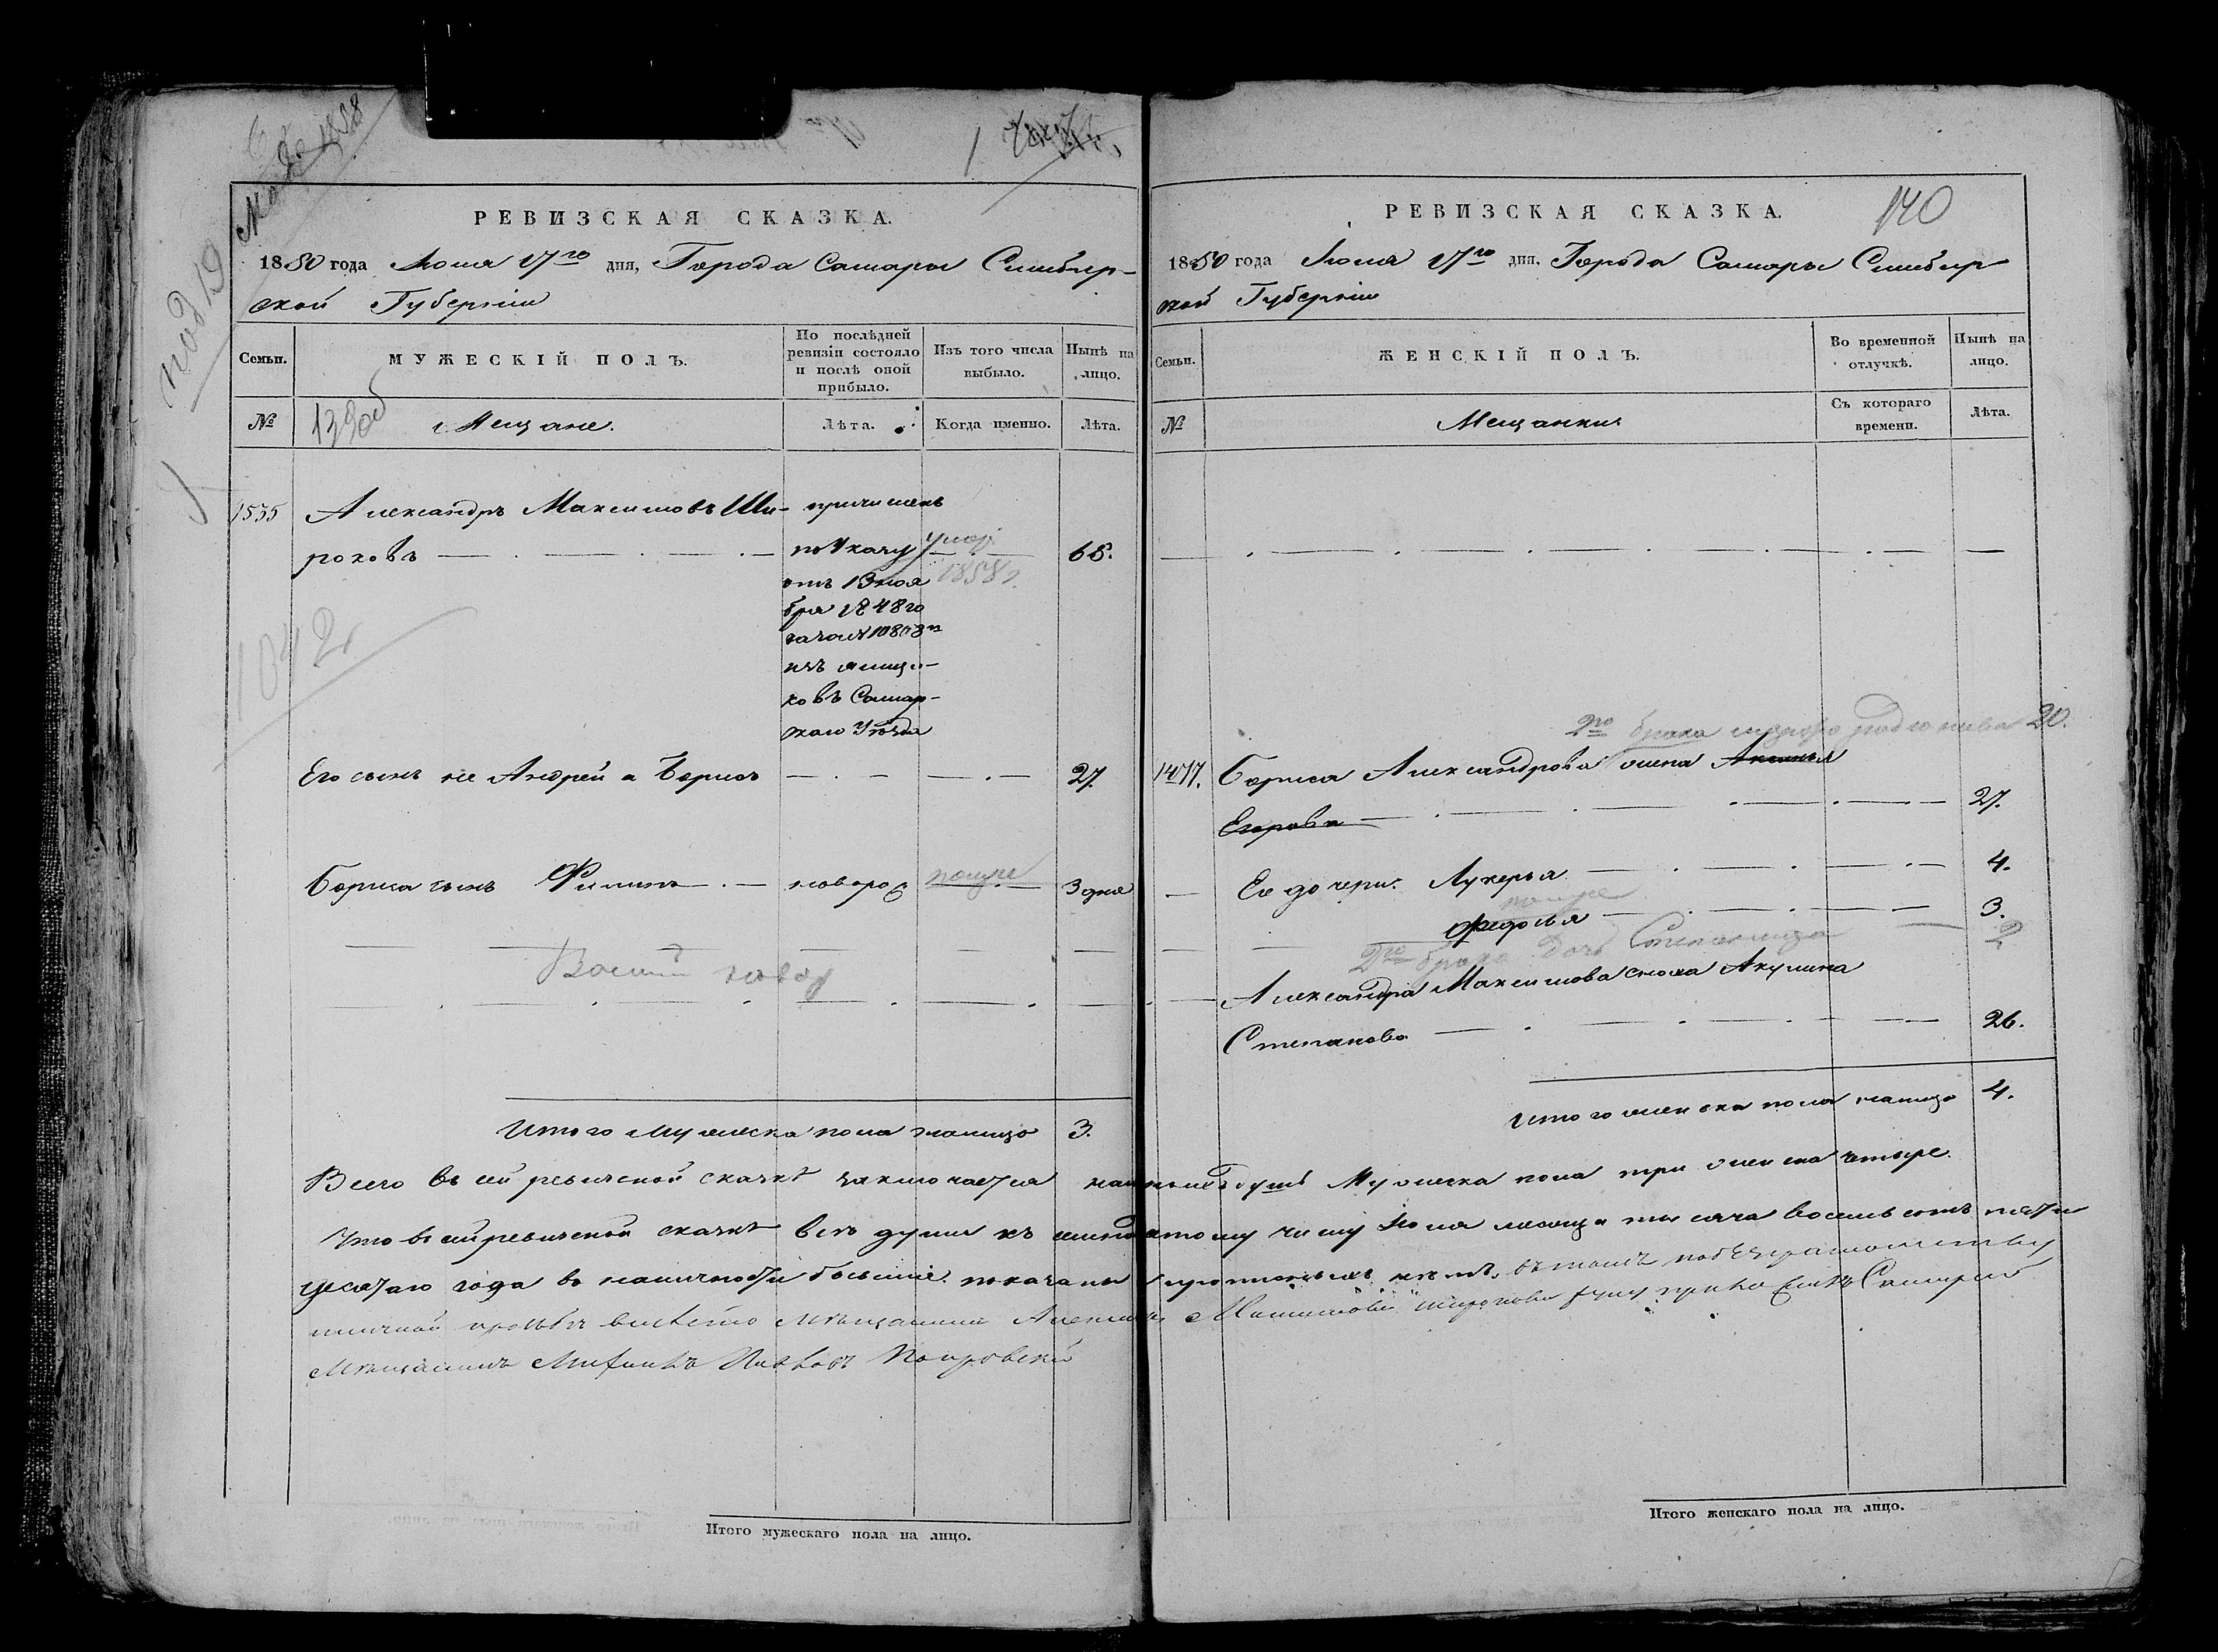 140
под 19
РЕВИЗСКАЯ СКАЗКА.
1850 года Июля 17го дня, Города Самары Симбир-
ской Губернии
Семьи.
МУЖЕСКІЙ ПОЛЪ.
По послѣдней ревизіи состояло и послѣ оной прибыло.
Изъ того числа выбыло.
Нынѣ на лицо.
№
Мещане.
Лѣта.
Когда именно.
Лѣта.
1535
Александръ Максимовъ Ши-
роковъ
причисленъ
по Указу
отъ 13 ноя
бря 1848 го
за № 10808м
изъ ямщи-
ковъ Самар-
скаго Уѣзда
умер
1858
68.
1042
Его сынъ не Андрей а Борисъ
27.
Бориса сынъ Филипъ
новорож
помре
3 дня
Василий новор
Итого мужеска пола налицо 3.
РЕВИЗСКАЯ СКАЗКА.
1850 года Июля 17го дня, Города Самары Симбир
ской Губернии
Семьи.
ЖЕНСКІЙ ПОЛЪ.
Во временной отлучкѣ.
Нынѣ на лицо.
№
Мещанки
Съ котораго времени.
Лѣта.
2го брака 20.
1477.
Бориса Александрова жена
Егорова
27.
Ее дочери: Лукерья
4.
помре
Федосья
3.
2го брака дочь Степанида
2
Александра Максимова сноха Акулина
Степанова
26.
Итого женска пола налицо 4.
Всего въ сей ревизской сказкѣ заключается наличныхъ душъ Мужеска пола три женска четыре.
Что въ сей ревизской сказкѣ всѣ души къ шестнадцатому числу Июля месяца тысяча восемь сотъ пяти
десятаго года въ наличности бывшие показаны и прописныхъ нетъ, въ томъ подъ
личной прозьбѣ вместо мѣщанина Александра Максимова Широкова руку приложилъ Самарской
Мѣщанинъ Покровский
Итого мужескаго пола на лицо.
Итого женскаго пола на лицо.